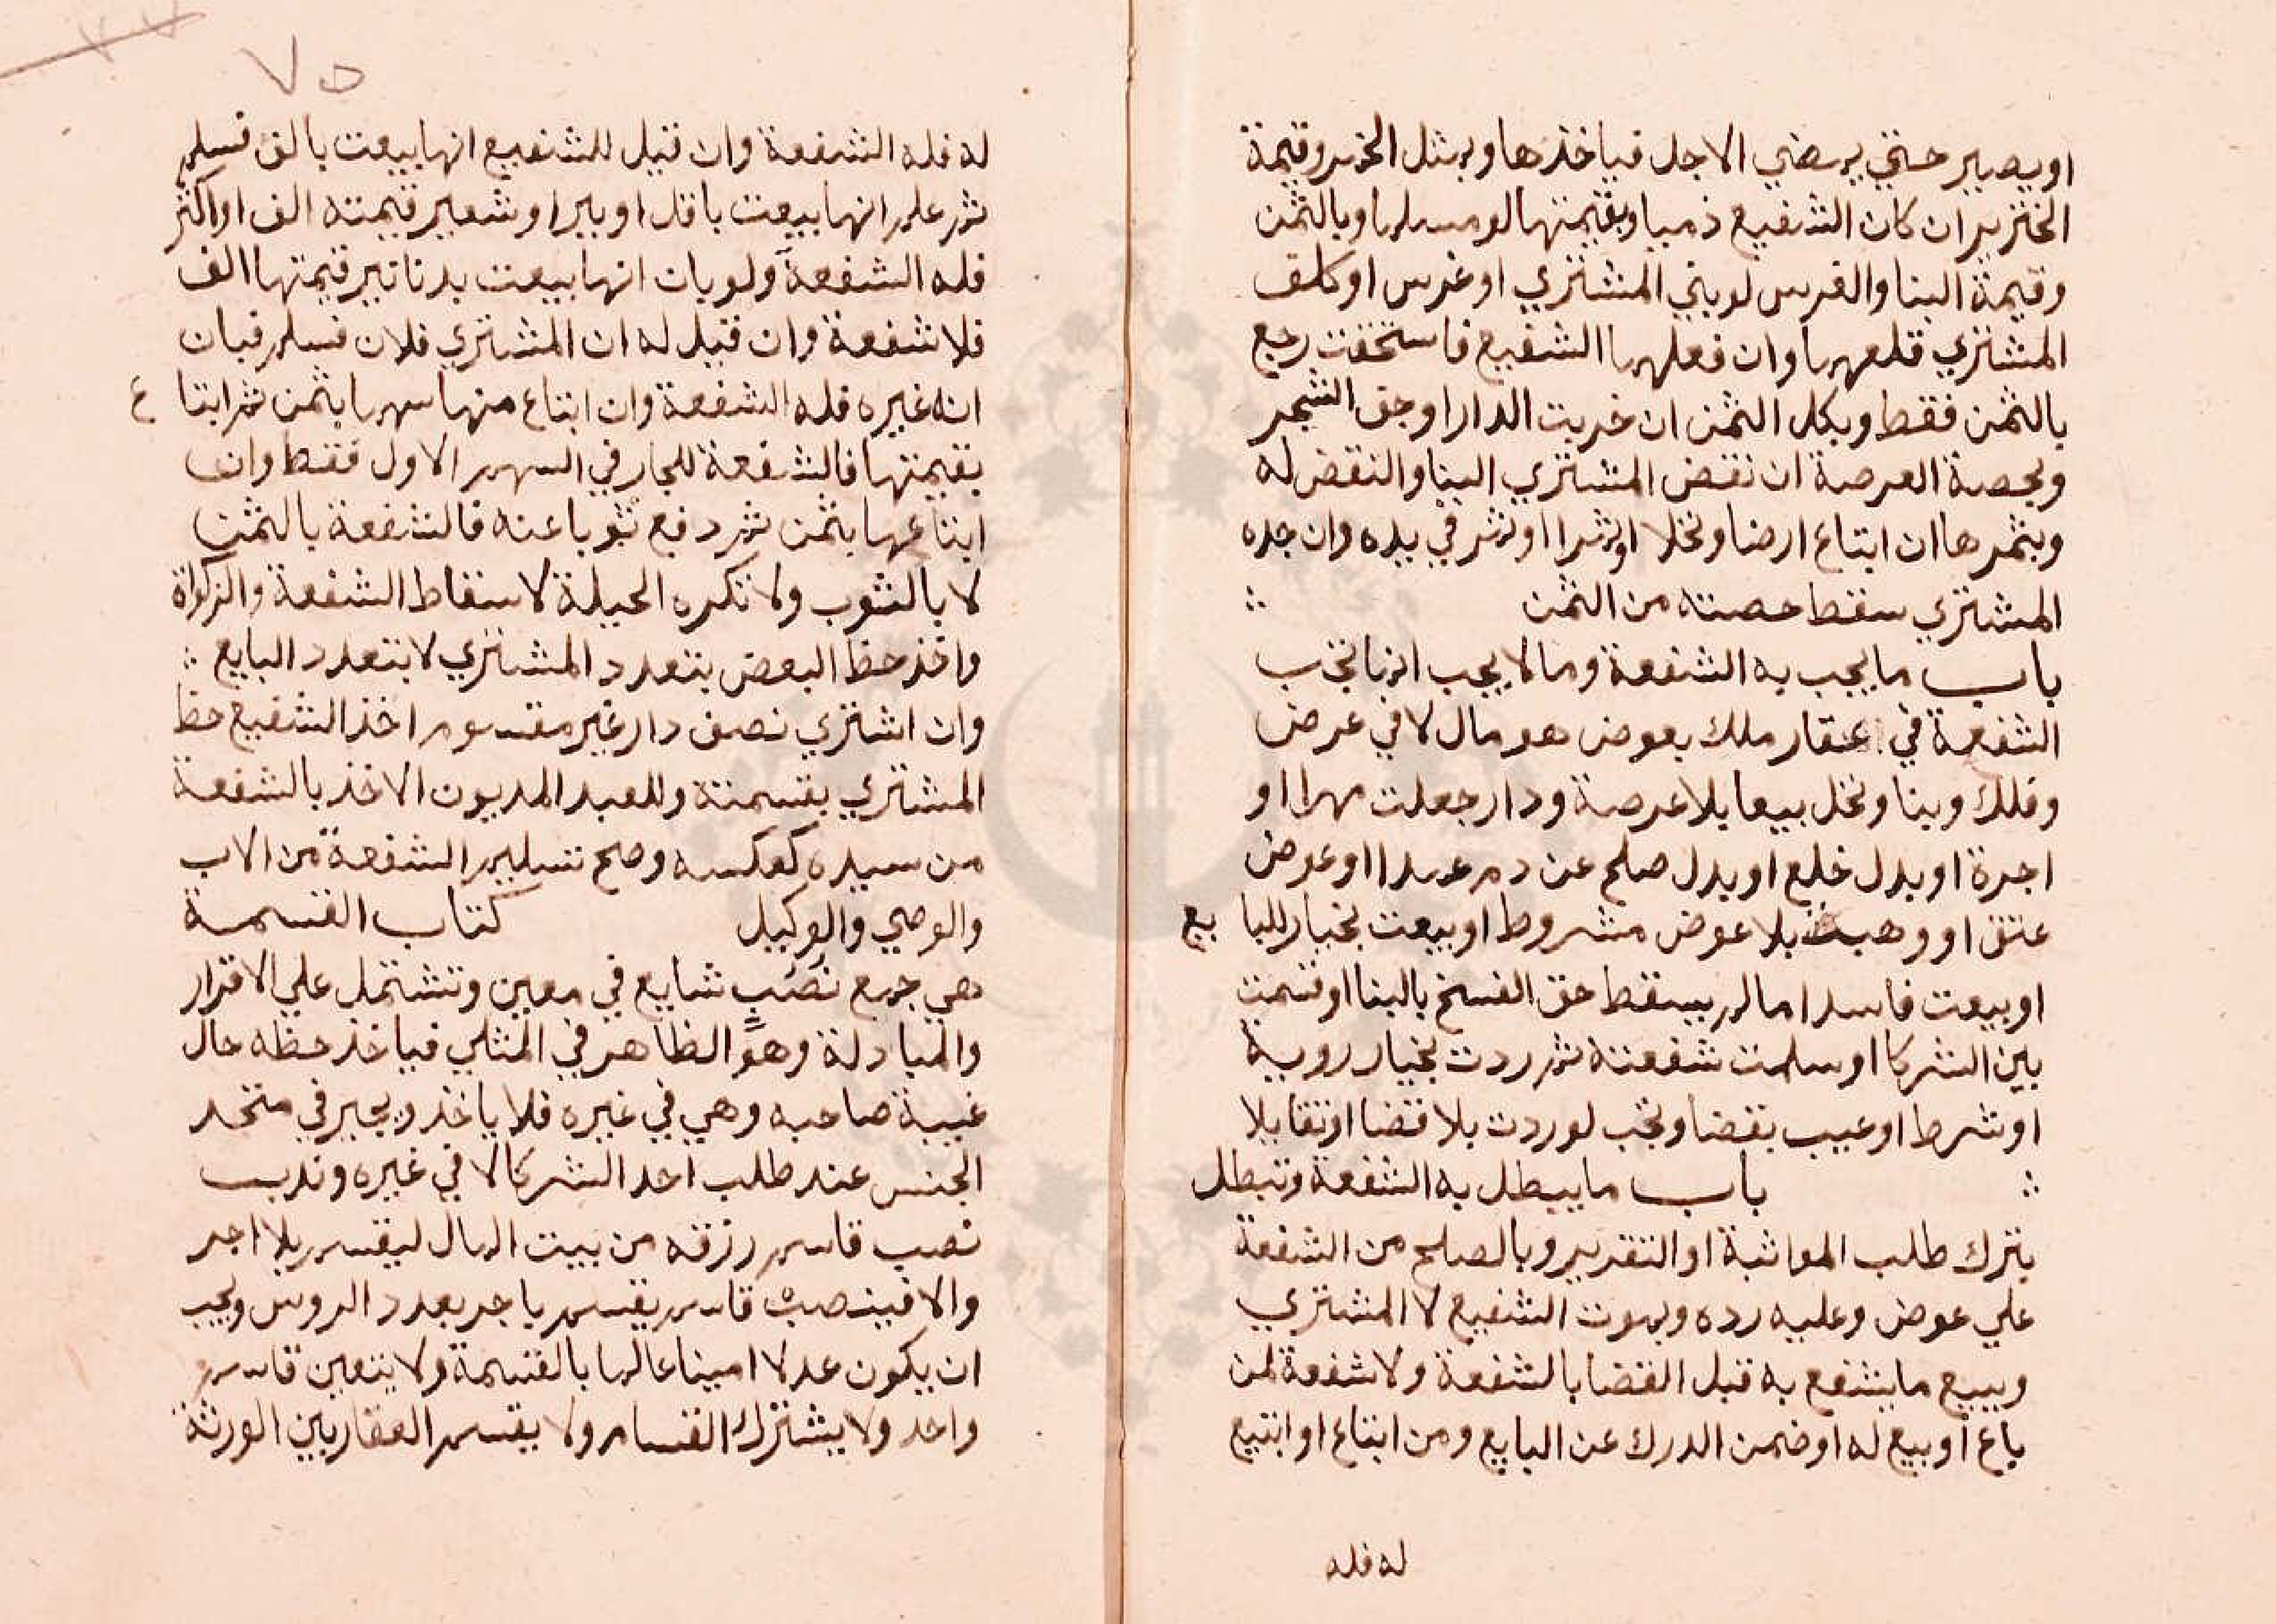 او يصير حتي يمضي الاجل فياخذها وبمثل الخمر وقيمة
الخنزير ان كان الشفيع ذميا وبقيمتهما لو مسلما وبالثمن
وقيمة البنا والغرس لو بني المشتري او غرس او كلف
المشتري قلعهما وان فعلهما الشفيع فاستحقت رجع
بالثمن فقط وبكل الثمن ان خربت الدار او جف الشجر
وبحصة العرصة ان نقض المشتري البنا والنقض له
وبثمرها ان ابتاع ارضا ونخلا وثمرا او اثمر في يده وان جده
المشتري سقط حصته من الثمن
باب ما يجب به الشفعة وما لا يجب انما تجب
الشفعة في عقار ملك بعوض هو مال لا في عرض
وفلك وبنا ونخل بيعا بلا عرصة ودار جعلت مهرا او
اجرة او بدل خلع او بدل صلح عن دم عمدا او عوض
عتق او وهبت بلا عوض مشروط او بيعت بخيار للبايع
او بيعت فاسدا ما لم يسقط حق الفسخ بالبنا او قسمت
بين الشركا او سلمت شفعته ثم ردت بخيار روية
او شرط او عيب بقضا وتجب لو ردت بلا قضا او تقايلا
باب ما يبطل به الشفعة وتبطل
بترك طلب المواثبة او التقرير وبالصلح من الشفعة
علي عوض وعليه رده وبموت الشفيع لا المشتري
وببيع ما يشفع به قبل القضا بالشفعة ولا شفعة لمن
باع او بيع له او ضمن الدرك عن البايع ومن ابتاع او ابتيع
له فله
٧٥
له فله الشفعة وان قيل للشفيع انها بيعت بالف فسلم
ثم علم انها بيعت باقل او ببر او شعير قيمته الف او اكثر
فله الشفعة ولو بان انها بيعت بدنانير قيمتها الف
فلا شفعة وان قيل له ان المشتري فلان فسلم فبان
انه غيره فله الشفعة وان ابتاع منها سهما بثمن ثم ابتاع
بقيمتها فالشفعة للجار في السهم الاول فقط وان
ابتاعها بثمن ثم دفع ثوبا عنه فالشفعة بالثمن
لا بالثوب ولا تكره الحيلة لاسقاط الشفعة والزكواة
واخذ حظ البعض بتعدد المشتري لا بتعدد البايع
وان اشتري نصف دار غير مقسوم اخذ الشفيع حظ
المشتري بقسمته وللعبد المديون الاخذ بالشفعة
من سيده كعكسه وصح تسليم الشفعة من الاب
والوصي والوكيل كتاب القسمة
هي جمع نصيب شايع في معين وتشتمل علي الاقرار
والمبادلة وهو الظاهر في المثلي فياخذ حظه حال
غيبة صاحبه وهي في غيره فلا ياخذ ويجبر في متحد
الجنس عند طلب احد الشركا لا في غيره وندب
نصب قاسم رزقه من بيت المال ليقسم بلا اجر
والا فينصب قاسم يقسم باجر بعدد الروس ويجب
ان يكون عدلا امينا عالما بالقسمة ولا يتعين قاسم
واحد ولا يشترك القسام ولا يقسم العقار بين الورثة